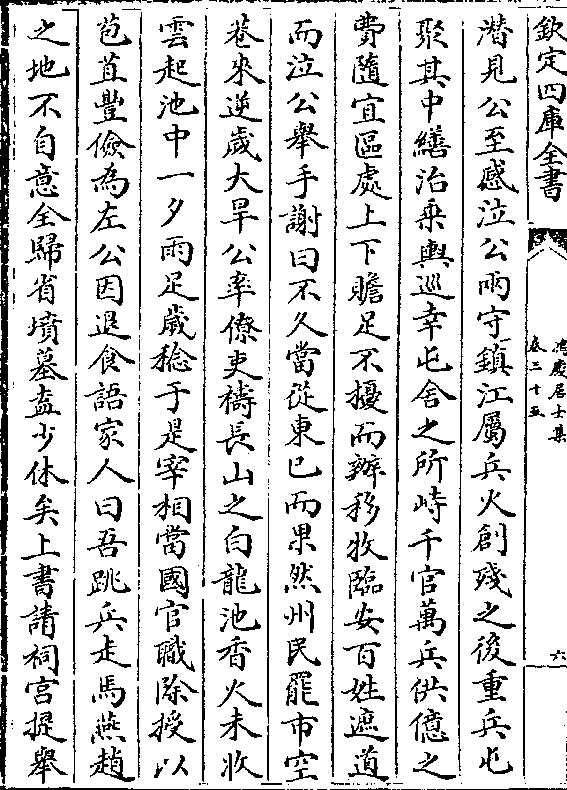 欽定四庫全書
鴻慶居士集
卷三十五
六
潛見公至感泣公兩守鎮江屬兵火創殘之後重兵屯
聚其中繕治乗輿巡幸屯舍之所峙千官萬兵供億之
費隨宜區處上下贍足不擾而辦移牧臨安百姓遮道
而泣公舉手謝曰不久當從東已而果然州民罷市空
巷來逆歲大旱公率僚吏禱長山之白龍池香火未收
雲起池中一夕雨足歲稔于是宰相當國官職除授以
苞苴豐儉為左公因退食語家人曰吾跳兵走馬燕趙
之地不自意全歸省墳墓盍少休矣上書請祠宫提舉